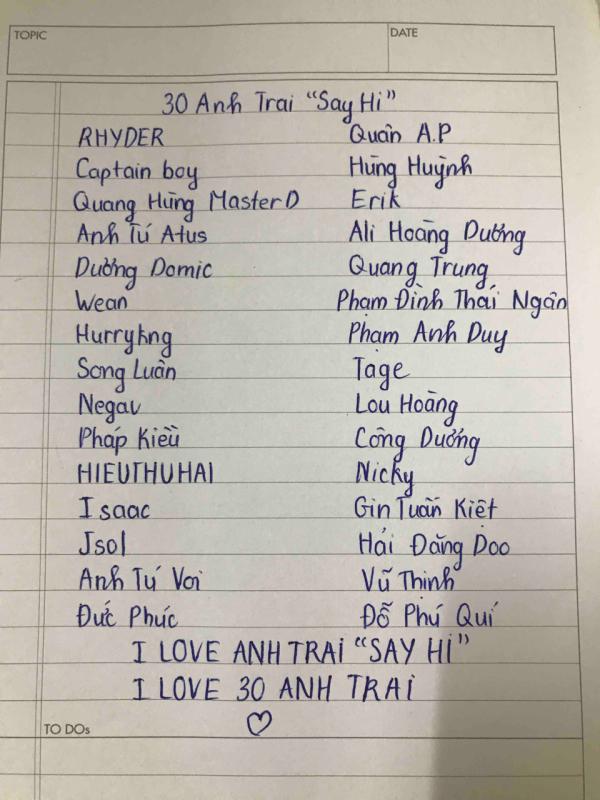 TOPIC
DATE
30 Anh Trai "Say Hi"
RHYDER
Captain boy
Quang Hùng MasterD
Anh Tú Atus
Dương Domic
Wean
Hurrykng
Song Luân
Negav
Pháp Kiều
HIEUTHUHAI
Isaac
Jsol
Anh Tú Voi
Đức Phúc
Quân A.P
Hùng Huỳnh
Erik
Ali Hoàng Dương
Quang Trung
Phạm Đình Thái Ngân
Phạm Anh Duy
Tage
Lou Hoàng
Công Dương
Nicky
Gin Tuấn Kiệt
Hải Đăng Doo
Vũ Thịnh
Đỗ Phú Quí
I LOVE ANH TRAi "SAY Hi"
I LOVE 30 ANH TRAi
♡
TO DOs